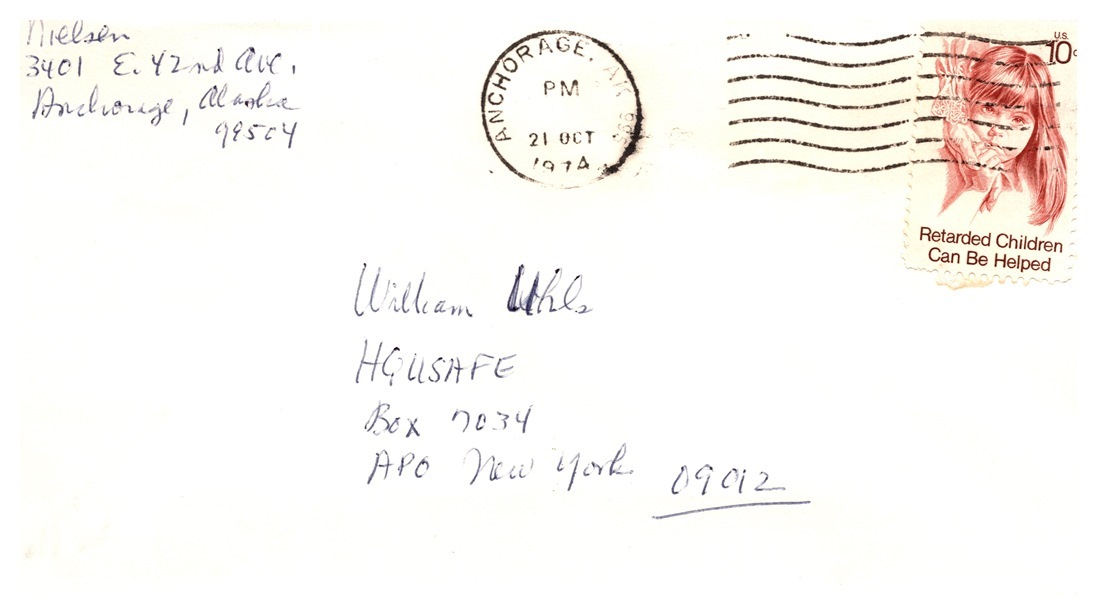 Nielsen
3401 E. 42nd Ave.
Anchorage, Alaska
99504
ANCHORAGE, AK
PM
21 OCT
1974
U.S.
10c
Retarded Children
Can Be Helped
William Uhls
HQUSAFE
Box 7034
APO New York 09012